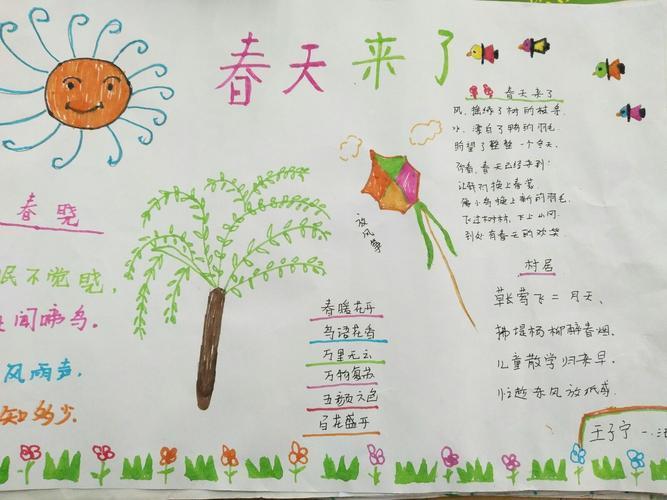 春天来了
春晓
民不觉晓，
闻啼鸟.
风雨声.
知多少.
放风筝
春暖花开
鸟语花香
万里无云
万物复苏
五颜六色
百花盛开
春天来了
风，摇绿了树的枝条
水，漂白了鸭的羽毛.
盼望了整整一个冬天，
你看，春天已经来到！
让我们换上春装
像小鸟换上新的羽毛.
飞过树林，飞上山冈
到处有春天的欢笑
村居
草长莺飞二月天、
拂堤杨柳醉春烟.
儿童散学归来早、
忙趁东风放纸鸢.
王子宁